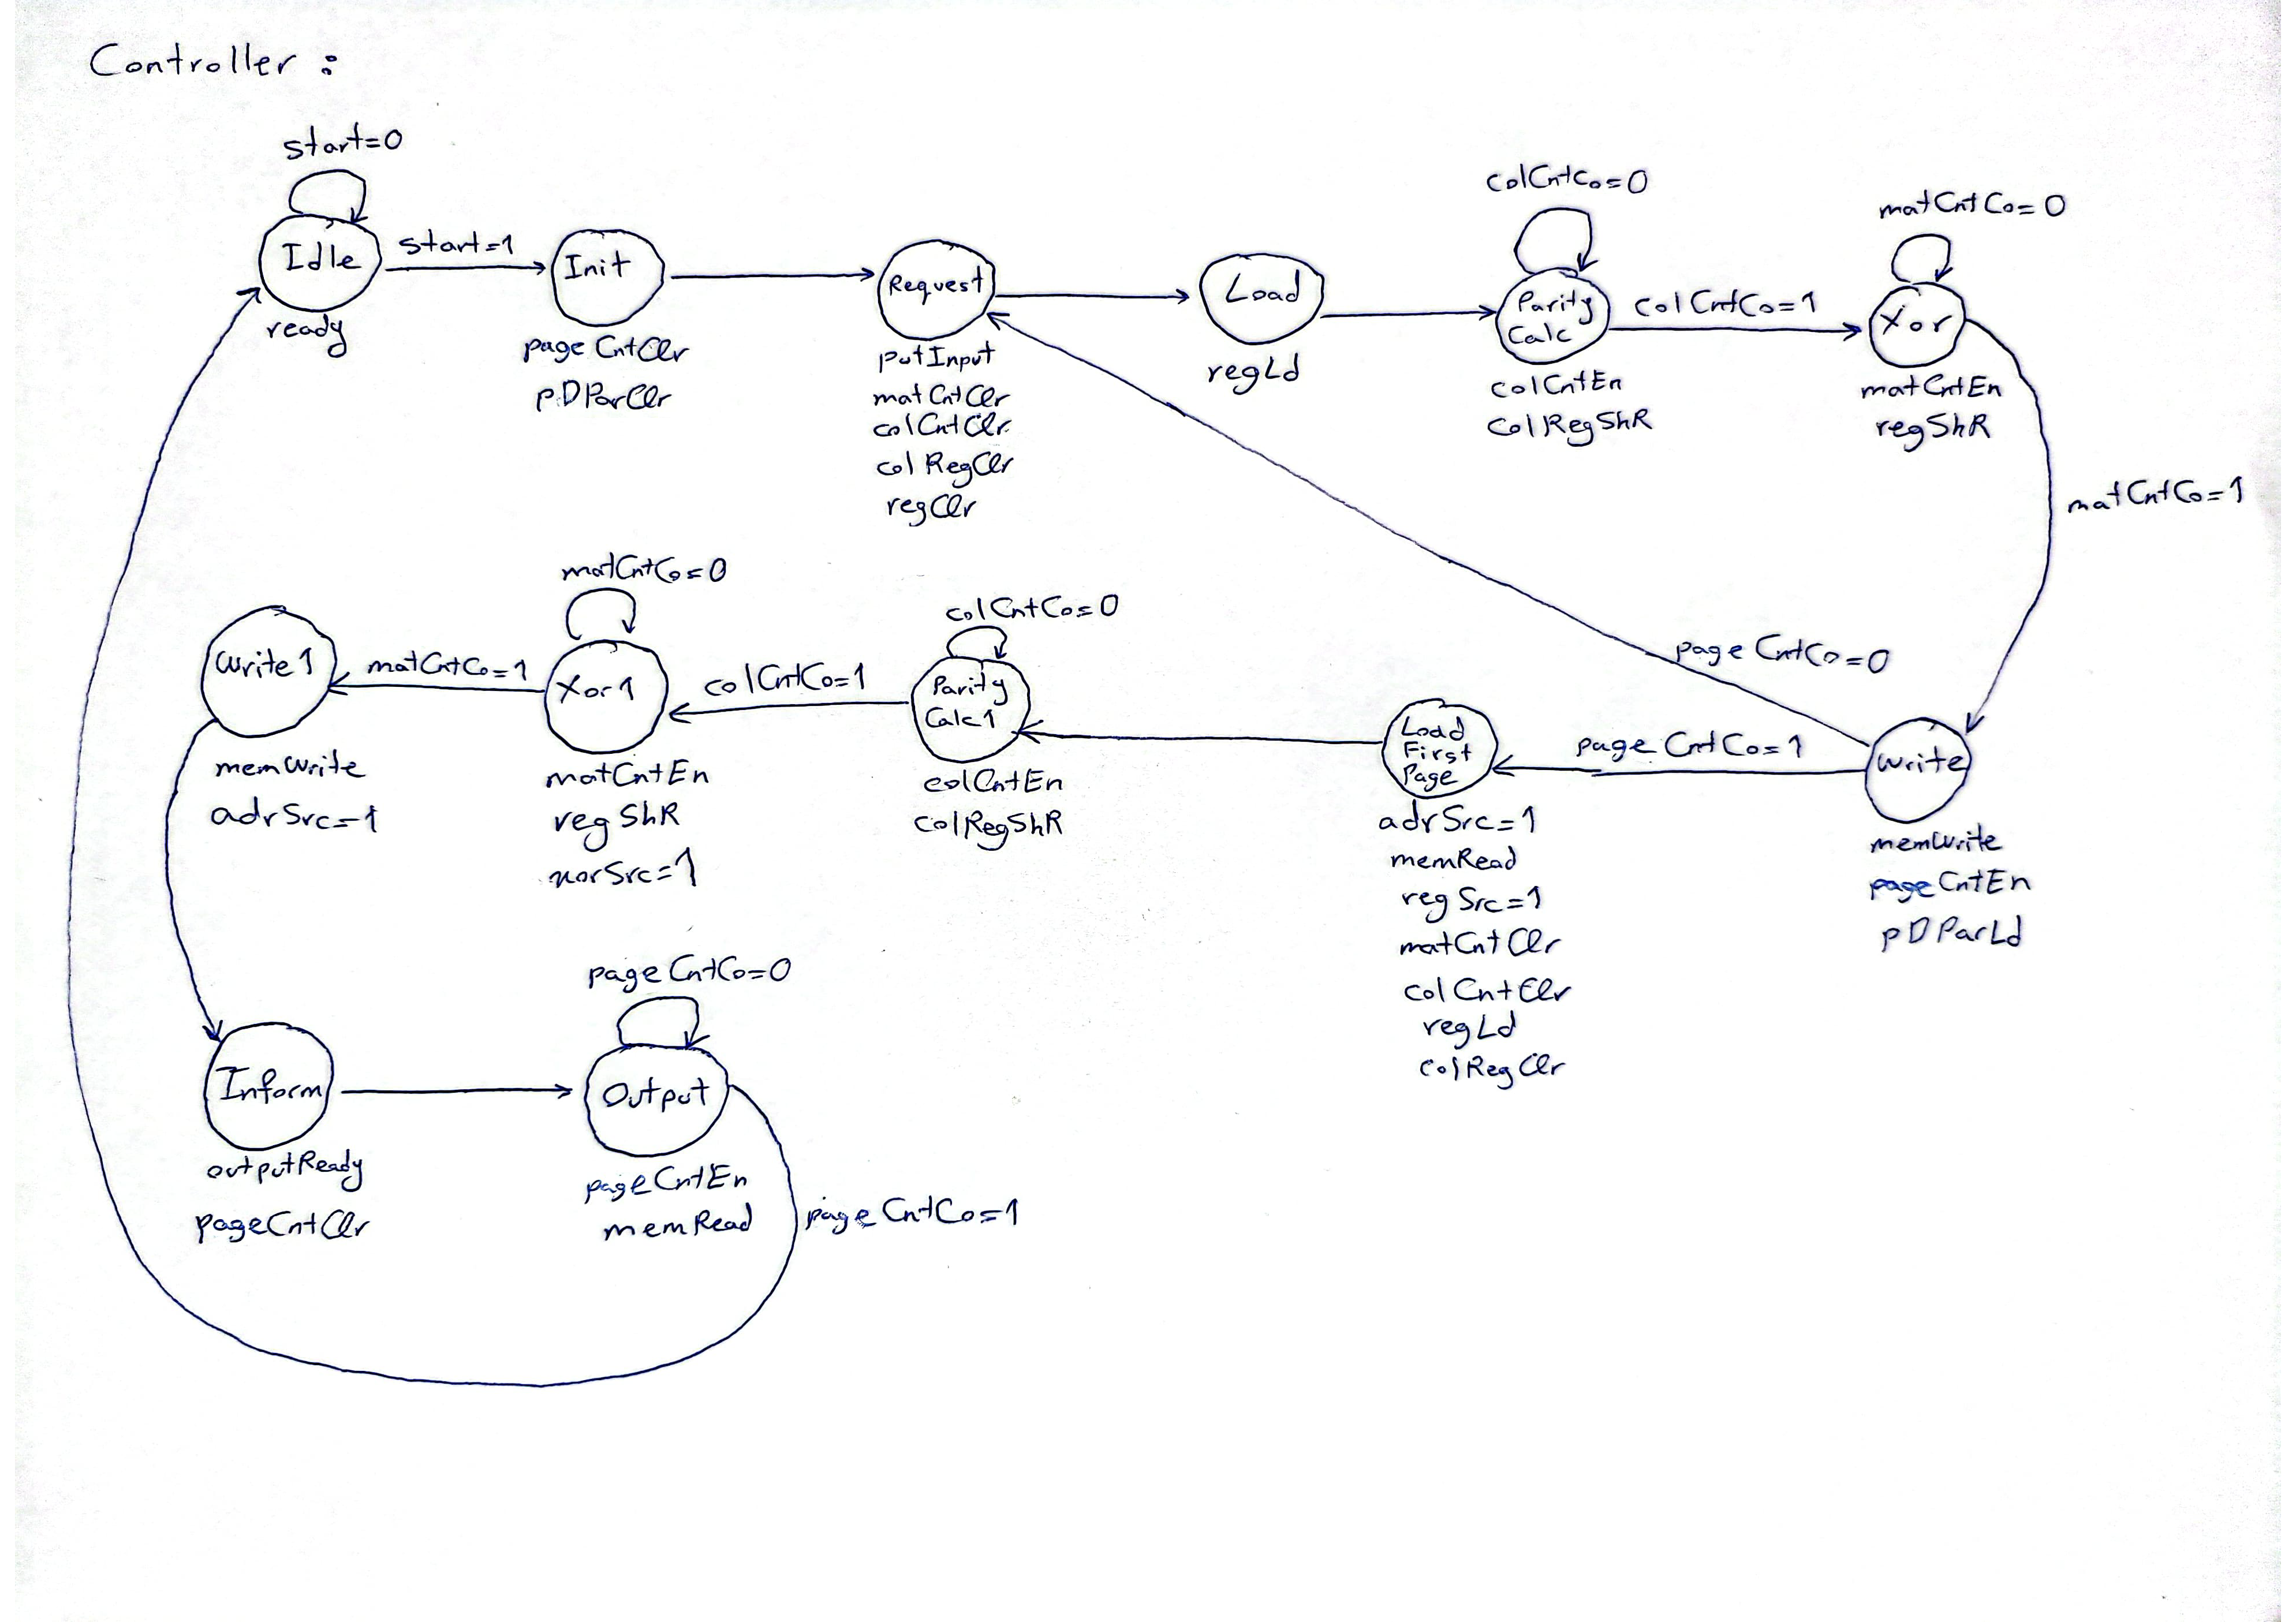 Controller :
start=0
Idle
ready
start=1
Init
pageCntClr
pDParClr
Request
putInput
matCntClr
colCntClr
colRegClr
regClr
Load
regLd
colCntCo=0
Parity
Calc
colCntEn
colRegShR
colCntCo=1
matCntCo=0
Xor
matCntEn
regShR
matCntCo=1
pageCntCo=0
Write
memWrite
pageCntEn
pDParLd
pageCntCo=1
Load
First
Page
adrSrc=1
memRead
regSrc=1
matCntClr
colCntClr
regLd
colRegClr
colCntCo=0
Parity
Calc1
colCntEn
colRegShR
colCntCo=1
matCntCo=0
Xor1
matCntEn
regShR
xorSrc=1
matCntCo=1
Write1
memWrite
adrSrc=1
Inform
outputReady
pageCntClr
pageCntCo=0
Output
pageCntEn
memRead
pageCntCo=1